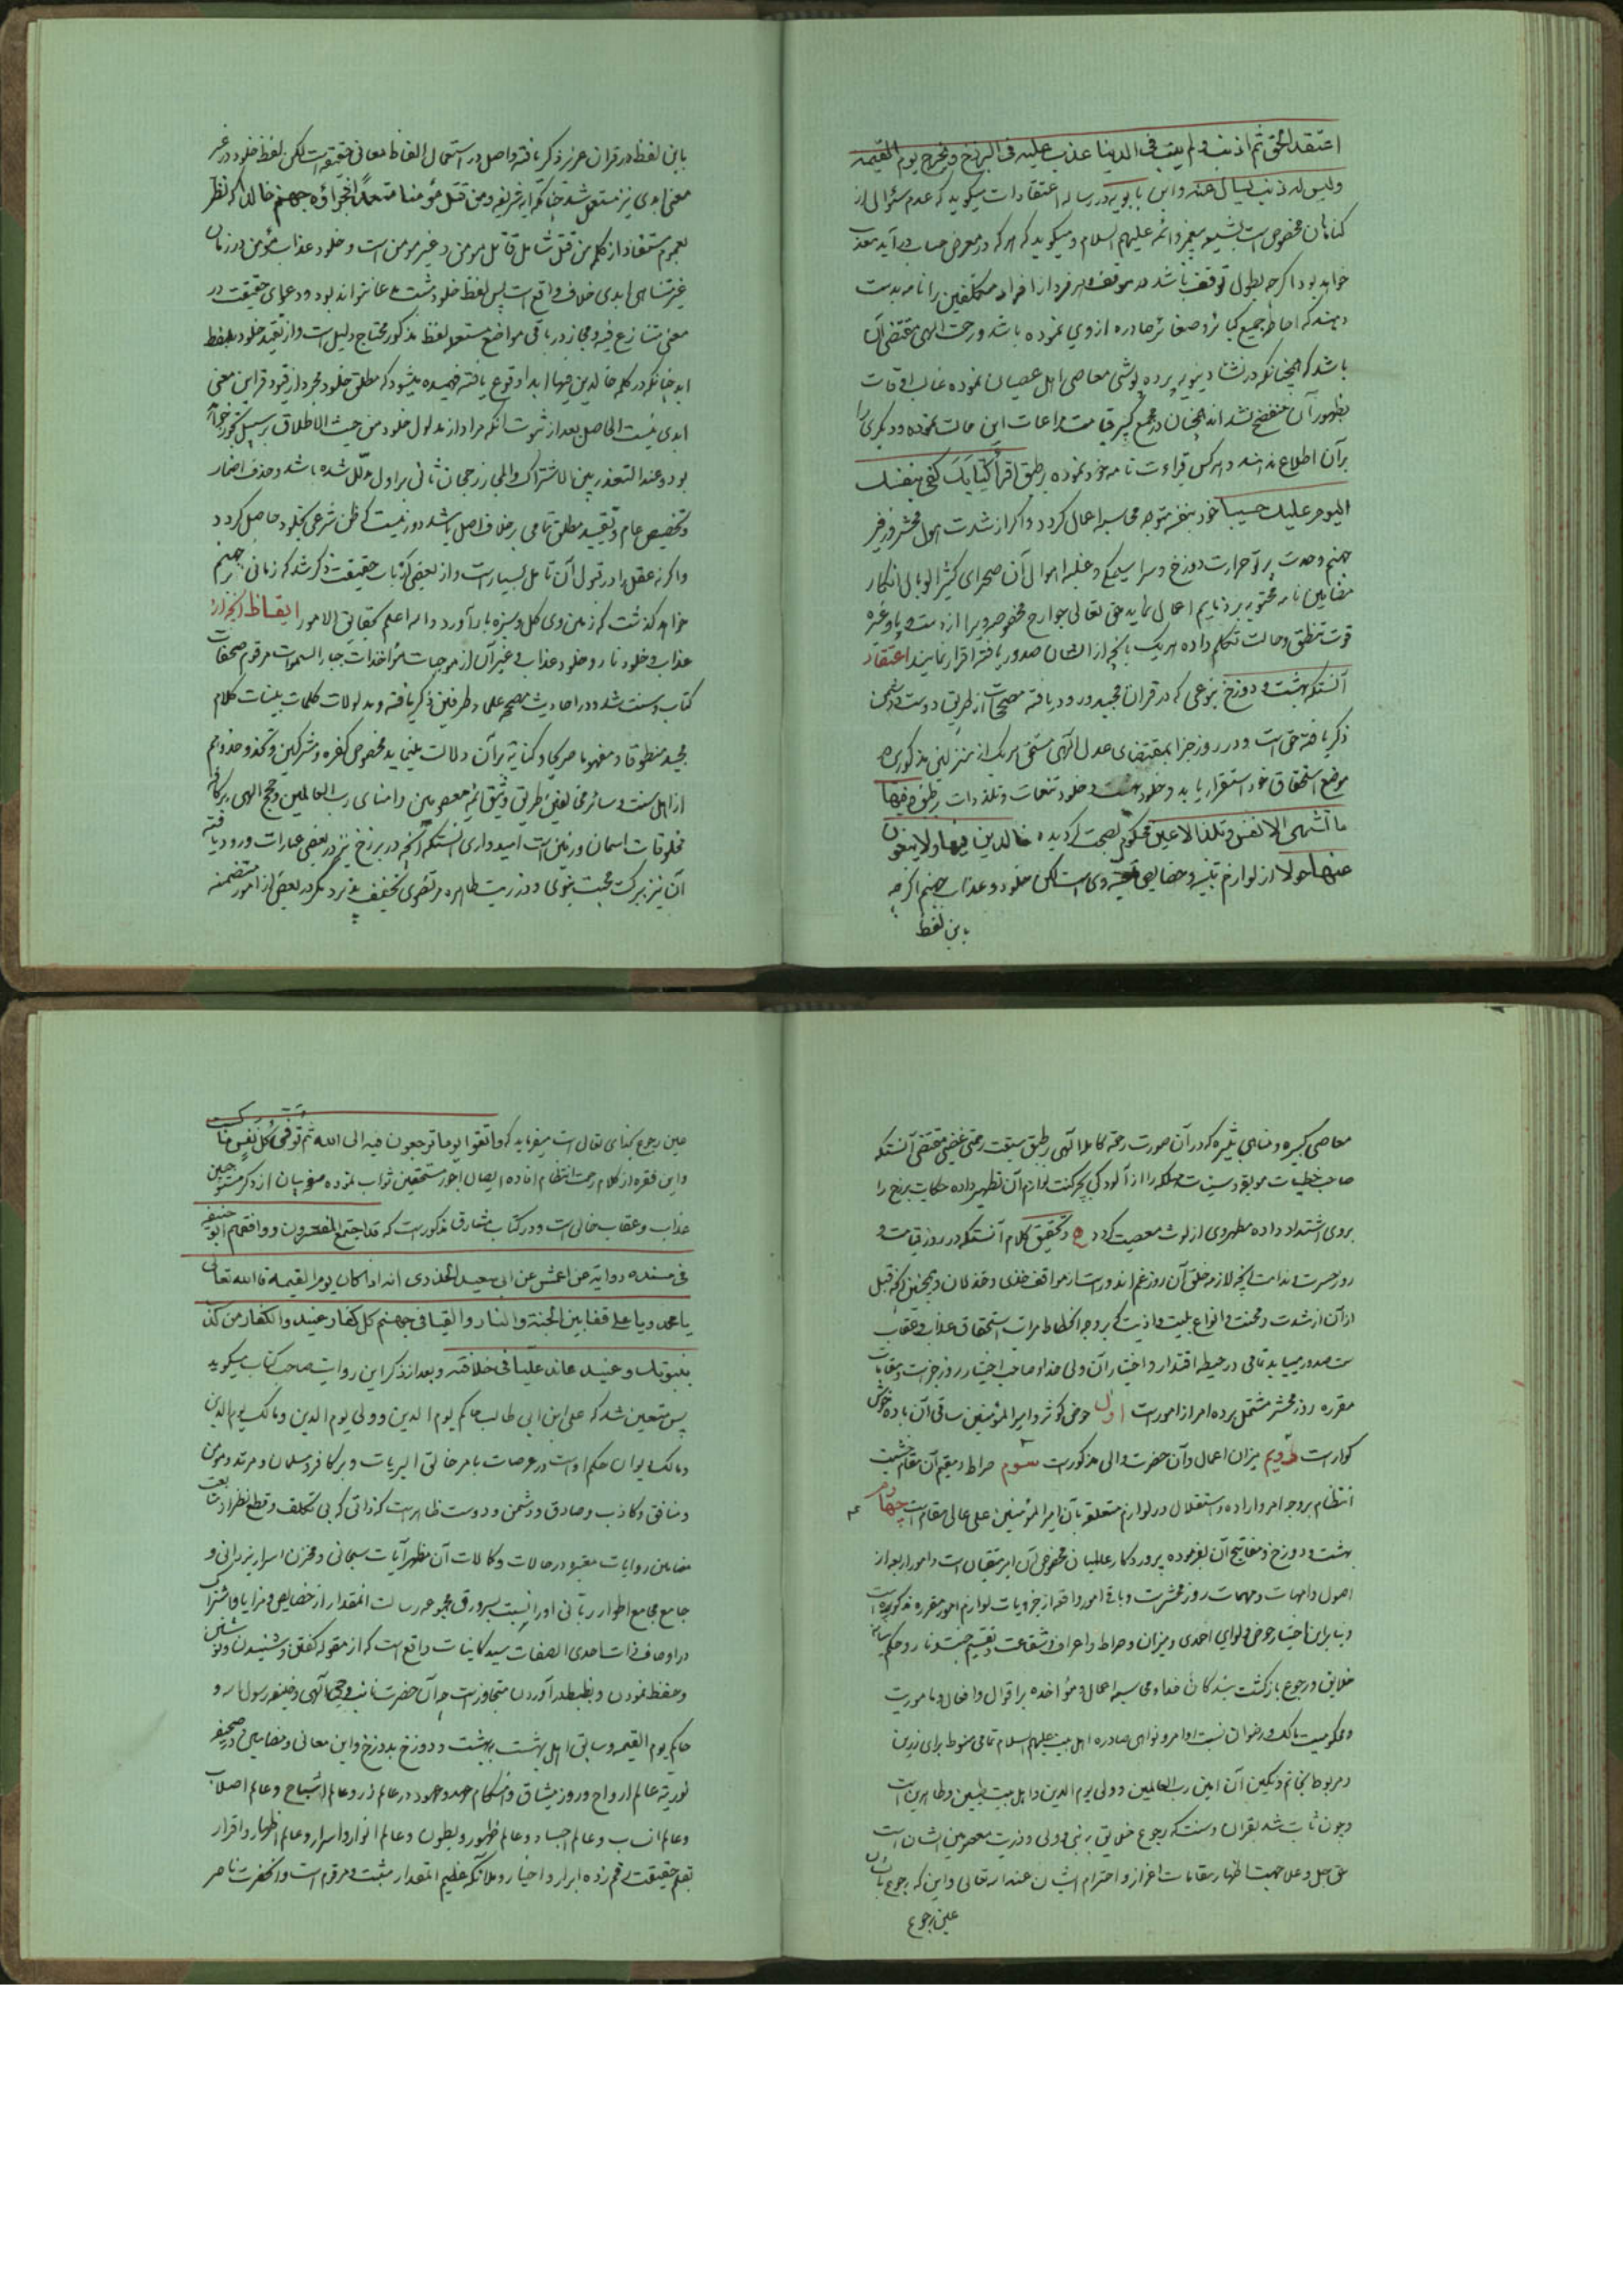 اعتقد الحق ثم اذنب و لم یتب فی الدنیا عذب علیه فی البرزخ و یخرج یوم القیمه
ولیس له ذنب یسال عنه و ابن بابویه در رساله اعتقادات میگوید که عدم سئوال از
کناهان مخصوص است بشیعه پیغمبر و ائمه علیهم السلام و میگوید که هر که در معرض حساب در آید معذب
خواهد بود اگرچه بطول توقف باشد در موقف و هر فرد از افراد مکلفین را نامه بدست
دهند که احاطه جمیع کبائر و صغائر صادره از وی نموده باشد و رحمت الهی مقتضی آن
باشد که همچنانکه در نشاء دنیویه پرده پوشی معاصی اهل عصیان نموده غالب اوقات
بظهور آن منفضح نشده اند همچنان در مجمع کبیر قیامت مراعات این حالت نموده و دیگری را
بر آن اطلاع ندهند و هر کس قراءت نامه خود نموده بر طبق اقرأ کتابک کفی بنفسک
الیوم علیک حسیبا خود بنفسه متوجه محاسبه اعمال کردد و اکر از شدت هول محشر و زفیر
جهنم و حدت پرتو حرارت دوزخ و سراسیمکی و غلبه اهوال آن صحرای کثیر الوبال انکار
مضامین نامه محتویه بر ذمایم اعمال نماید حق تعالی جوارح مخصوصه ویرا از دست و پا و غیره
قوت تنطق و حالت تکلم داده هر یک بانچه از ایشان صدور یافته اقرار نمایند اعتقاد
آنستکه بهشت و دوزخ بنوعی که در قران مجید ورود یافته
ذکر یافته حق است و در روز جزا بمقتضای عدل الهی مستحق هر یک از منزلین مذکورین
موضع استحقاق خود استقرار یابد و خلود بهشت و خلود تنعمات و تلذذات بر طبق و فیها
ما تشتهی الانفس و تلذ الاعین محکوم بصحت کردیده خالدین فیها و لا یبغون
عنها حولا از لوازم و خصایص وی است لکن خلود و عذاب جهنم اگرچه
باین لفظ
باین لفظ در قران عزیز ذکر یافته و اصل در استعمال الفاظ معانی حقیقه است لکن لفظ خلود در غیر
معنی ابدی نیز مستعمل شد چنانکه آیه شریفه ومن قتل مؤمنا متعمدا فجزاؤه جهنم خالدا که نظر
بعموم مستفاد از کلمه من قتل شامل قاتل مومن و غیر مومن است و خلود عذاب مؤمن در زمان
غیر متناهی ابدی خلاف واقع است پس لفظ خلود مثبت مدعا نتواند بود و دعوای حقیقت در
معنی متنازع فیه و مجاز در باقی مواضع مستعمله لفظ مذکور محتاج دلیل است و از تقیید خلود بلفظ
ابد چنانکه در کلمه خالدین فیها ابدا وقوع یافته فهمیده میشود که مطلق خلود مجرد از قیود قراین معنی
ابدی نیست الحاصل بعد از ثبوت انکه مراد از مدلول خلود من حیث الاطلاق بر سبیل تجوز
بود و عند التعذر بین الاشتراک و المجاز رجحان ثانی بر اول مدلل شده باشد و حذف اضمار
و تخصیص عام و تقیید مطلق تمامی بر خلاف اصل باشد دور نیست که ظن شرعی بخلود حاصل کردد
و اکر نه عقل را در قبول آن تامل بسیار است و از بعضی ارباب حقیقت ذکر شد که زمانی بر جهنم
خواهد کذشت که زمین وی کل و سبزه بار آورد و الله اعلم بحقایق الامور ایقاظ آنچه از
عذاب و خلود نار و خلود عذاب و غیر آن از موجبات مؤاخذات جبار السموات مرقوم صفحات
کتاب و سنت شد و در احادیث مصححه علماء طرفین ذکر یافته و مدلولات کلمات بینات کلام
مجید منطوقا و مفهوما صریحا و کنایة بر آن دلالت مینماید مخصوص کفره و مشرکین و
از اهل سنت و سائر مخالفین طریق وثیق ائمه معصومین و امنای رب العالمین و حجج الهی بر کافه
مخلوقات اسمان و زمین است امیدواری آنستکه آنچه در برزخ نیز در بعضی عبارات ورود یافته
آن نیز ببرکت محبت نبوی و ذریت طاهره مرتضوی تخفیف پذیرد مکر در بعضی از امور متضمنه
معاصی کبیره و مناهی کثیره که در آن صورت رحمة کامله الهی بر طبق سبقت رحمتی غضبی مقتضی آنستکه
صاحب خطیئات موبقه و سیئات مهلکه را از آلودکی لوازم آن تطهیر داده حکایت برزخ را
بروی اشتداد داده مطهر وی از لوث معصیت کردد و تحقیق کلام آنستکه در روز قیامت و
روز حسرت و ندامت آنچه لازمه خلق آن روز غم اندوز است از مواقف خزی و خذلان و همچنین آنچه قبل
از آن از شدت و محنت و انواع بلیت و اذیت که بر وجه انحطاط مراتب استحقاق عذاب و عقاب
ست صدور مییابد تمامی در حیطه اقتدار و اختیار آن ولی خدا و صاحب اختیار روز جزاست و مقامات
مقرره روز محشر مشتمل بر ده امر از امور است اول حوض کوثر و امیر المؤمنین ساقی آن باده خوش
کوار است دویم میزان اعمال و آن حضرت والی مذکور است سوم صراط و مقیم آن مقام خشیت
انتظام بر وجه امر و اراده و استقلال در لوازم متعلقه بآن امیر المؤمنین علی عالی مقام است چهارم
بهشت و دوزخ و مفاتیح آن بفرموده پروردکار عالمیان مخصوص آن امیر متقیان است و امور اربعه از
اصول و امهات و مهمات روز محشر است و باقی امور واقعه از جزویات لوازم امور مقرره مذکوره است
و بنابراین اختیار حوض و لوای احمدی و میزان و صراط و اعراف و شفاعت و تقسیم جنت و نار و حکم
خلایق و رجوع بازکشت بندکان خدا و محاسبه اعمال و مؤاخده بر اقوال و افعال و ماموریت
و محکومیت مالک و رضوان نسبت باوامر و نواهی صادره اهل بیت علیهم السلام تمامی منوط برای زرین
و مربوط بخاتم و نکین آن امین رب العالمین و ولی یوم الدین و اهل بیت طیبین و طاهرین است
و چون ثابت شد بقران و سنت که رجوع خلایق بر نبی و ولی و ذریت معصومین ایشان است
حق جل و علا جهت اظهار مقامات اعزاز و احترام ایشان عند الله تعالی و این که رجوع بایشان
عین رجوع
عین رجوع بخدای تعالی است میفرماید که واتقوا یوما ترجعون فیه الی الله ثم توفی کل نفس ما کسبت
و این فقره از کلام رحمت انتظام افاده ایصال اجور مستحقین ثواب نموده از ذکر مستوجبین
عذاب و عقاب خالی است و در کتاب مشارق مذکور است که قد اجمع المفسرون و وافقهم ابو حنیفه
فی مسنده روایة عن اعمش عن ابی سعید الخدری انه اذا کان یوم القیمه قال الله تعالی
یا محمد و یا علی قفا بین الجنة و النار و القیا فی جهنم کل کفار عنید و الکفار من کذب
بنبوتک و عنید عاند علیا فی خلافته و بعد از ذکر این روایت صاحب کتاب میکوید
پس متعین شد که علی ابن ابی طالب حاکم یوم الدین و ولی یوم الدین و مالک یوم الدین
و مالک دیوان حکم اوست در عرصات بامر خالق البریات و بر کافر و مسلمان و مرتد و مومن
و منافق و کاذب و صادق و دشمن و دوست ظاهر است که ذاتی که بی تکلف و قطع نظر از متابعت
مضامین روایات معتبره در حالات و کمالات آن مظهر آیات سبحانی و مخزن اسرار یزدانی و
جامع مجامع اطوار ربانی او را نسبت بسرورق مجموعه رسالت المقدار از خصایص و مزایا و اشتراک
در اوصاف ذات احدی الصفات سید کاینات واقع است که از مقوله کفتن و شنیدن و نوشتن
و حفظ نمودن و بضبط در آوردن متجاوز است و آن حضرت نائب وحی الهی و خلیفه رسول الله و
حاکم یوم القیمه و سایق اهل بهشت ببهشت و دوزخ بدوزخ و این معانی و مضامین در صحیفه
نوریه عالم ارواح و روز میثاق و هنکام عهد و عهود در عالم ذر و عالم اشباح و عالم اصلاب
و عالم انساب و عالم اجساد و عالم ظهور و بطون و عالم انوار و اسرار و عالم اظهار و اقرار
بقلم حقیقت رقم زده ابرار و اخیار و ملائکه عظیم المقدار مثبت و مرقوم است و آنحضرت ناصر